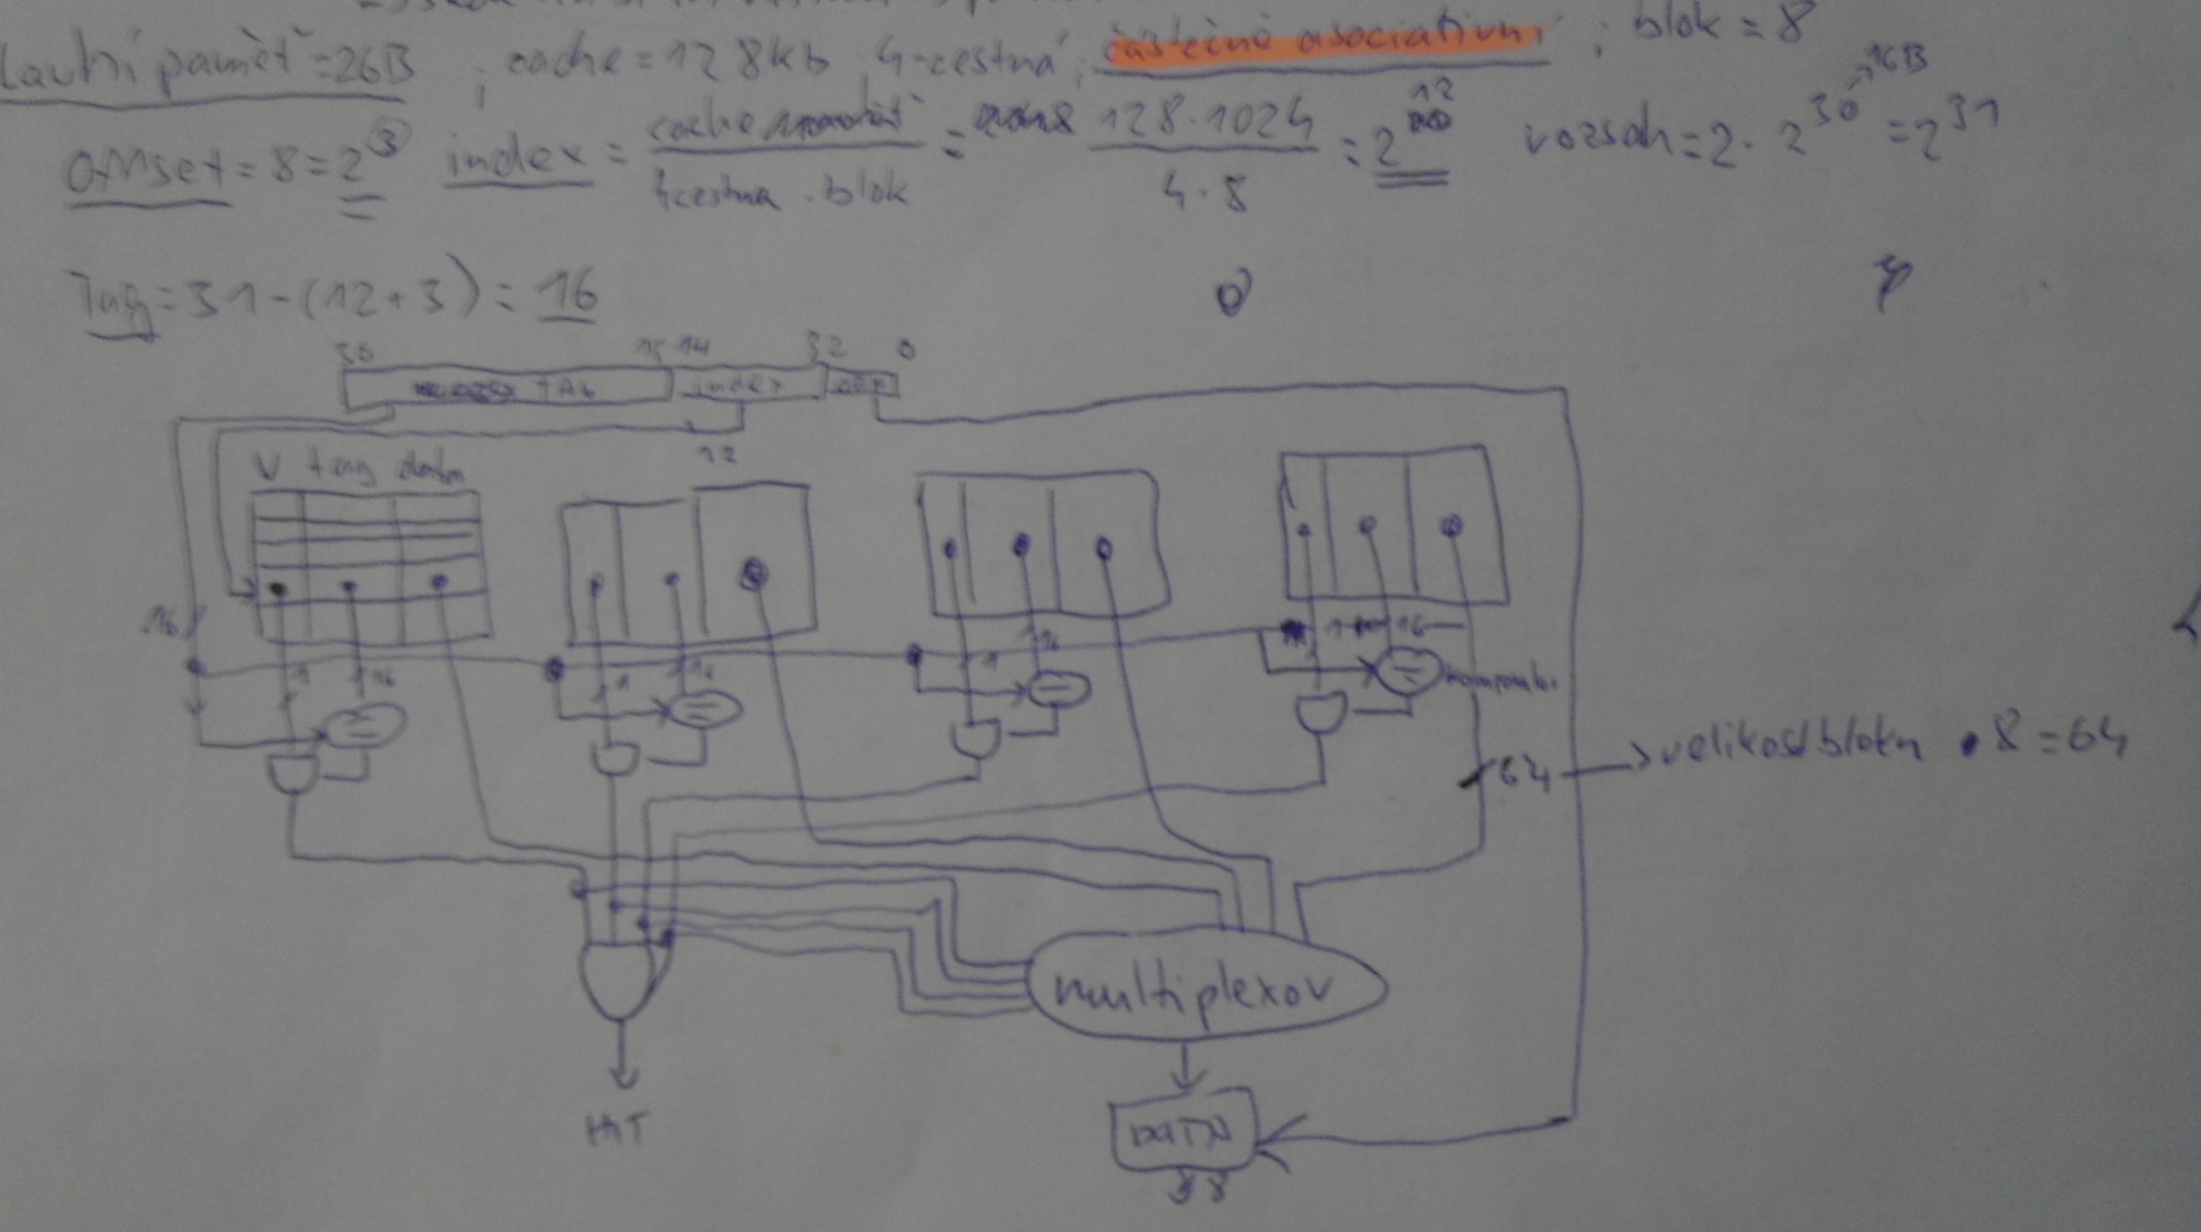 pamět=2GB ; cache = 128kb, 4-cestná, částečně asociativní ; blok = 8
offset = 8 = 2^3 index = cache / 4cestna . blok = 128.1024 / 4.8 = 2^12 rozsah = 2. 2^30 = 2^31
→1GB
Tag = 31-(12+3) = 16
30 15 14 3 2 0
TAG index off
12
V tag data
16
1 16 1 16 1 16 1 16 komparát.
64 → velikost bloku . 8 = 64
multiplexor
HIT
DATA
8